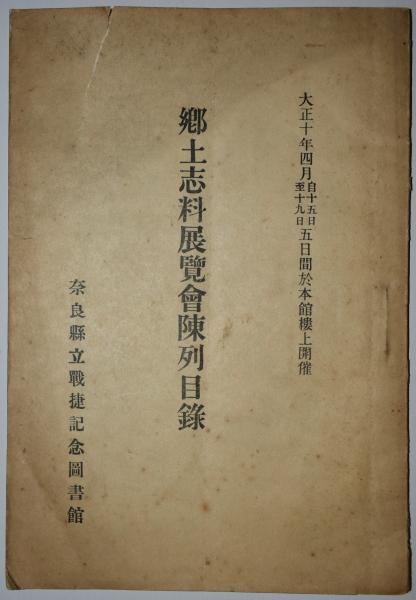 大正十年四月自十五日至十九日五日間於本館樓上開催
鄕土志料展覽會陳列目錄
奈良縣立戰捷記念圖書館